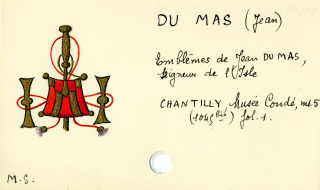 DU MAS (Jean)
Emblèmes de Jean DU MAS,
Seigneur de l'Isle
CHANTILLY Musée Condé, ms. 5
(1045 bis) fol. 1.
M.S.